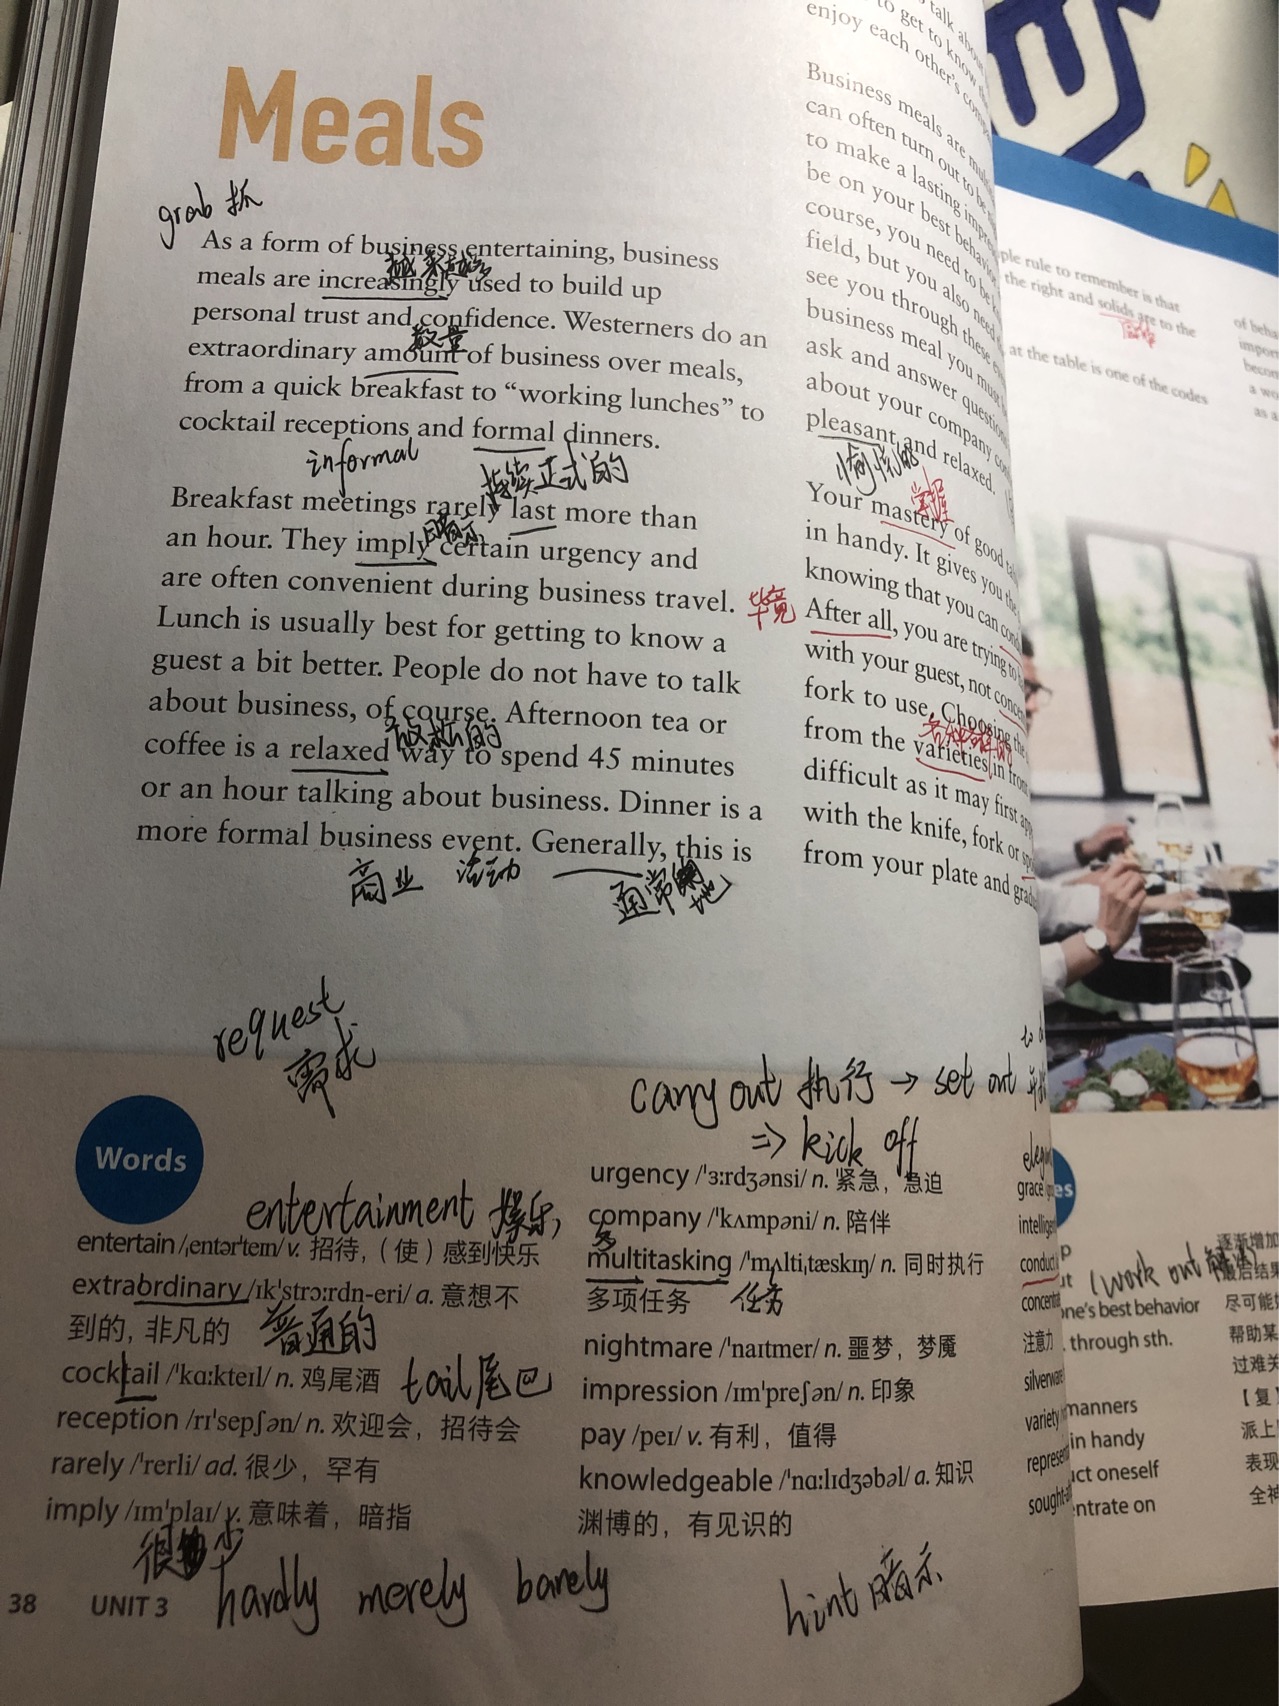 Meals
grab 抓
As a form of business entertaining, business
越来越多
meals are increasingly used to build up
personal trust and confidence. Westerners do an
数量
extraordinary amount of business over meals,
from a quick breakfast to “working lunches” to
cocktail receptions and formal dinners.
informal 持续 正式的
Breakfast meetings rarely last more than
暗示
an hour. They imply certain urgency and
are often convenient during business travel.
Lunch is usually best for getting to know a
guest a bit better. People do not have to talk
about business, of course. Afternoon tea or
放松的
coffee is a relaxed way to spend 45 minutes
or an hour talking about business. Dinner is a
more formal business event. Generally, this is
商业 活动 通常 地
talk about
to get to know
enjoy each other's
Business meals are
can often turn out to be
to make a lasting
be on your best behavior
course, you need to be
field, but you also need
see you through these
business meal you must
ask and answer questions
about your company
pleasant and relaxed.
愉悦的
掌握
Your mastery of good
in handy. It gives you the
knowing that you can
毕竟 After all, you are trying to
with your guest, not
fork to use. Choosing the
各种各样的
from the varieties in
difficult as it may first
with the knife, fork or
from your plate and
request
需求
carry out 执行 → set out
⇒ kick off
Words
entertainment 娱乐
entertain /ˌentərˈteɪn/ v. 招待，（使）感到快乐
extraordinary /ɪkˈstrɔːrdn-eri/ a. 意想不
到的, 非凡的 普通的
cocktail /ˈkɑːkteɪl/ n. 鸡尾酒 tail尾巴
reception /rɪˈsepʃən/ n. 欢迎会，招待会
rarely /ˈrerli/ ad. 很少，罕有
imply /ɪmˈplaɪ/ v. 意味着，暗指
很 少
hardly merely barely
urgency /ˈɜːrdʒənsi/ n. 紧急，急迫
company /ˈkʌmpəni/ n. 陪伴
多
multitasking /ˈmʌltiˌtæskɪŋ/ n. 同时执行
多项任务 任务
nightmare /ˈnaɪtmer/ n. 噩梦，梦魇
impression /ɪmˈpreʃən/ n. 印象
pay /peɪ/ v. 有利，值得
knowledgeable /ˈnɑːlɪdʒəbəl/ a. 知识
渊博的，有见识的
hint 暗示
38 UNIT 3
grace
conduct
注意力
silverware
variety
rule to remember is that
the right and solids are to the
at the table is one of the codes
of
a
as a
(work out
逐渐增加
最后结果
one's best behavior 尽可能
through sth. 帮助某
过难关
manners 【复】
in handy 派上
oneself 表现
on 全神